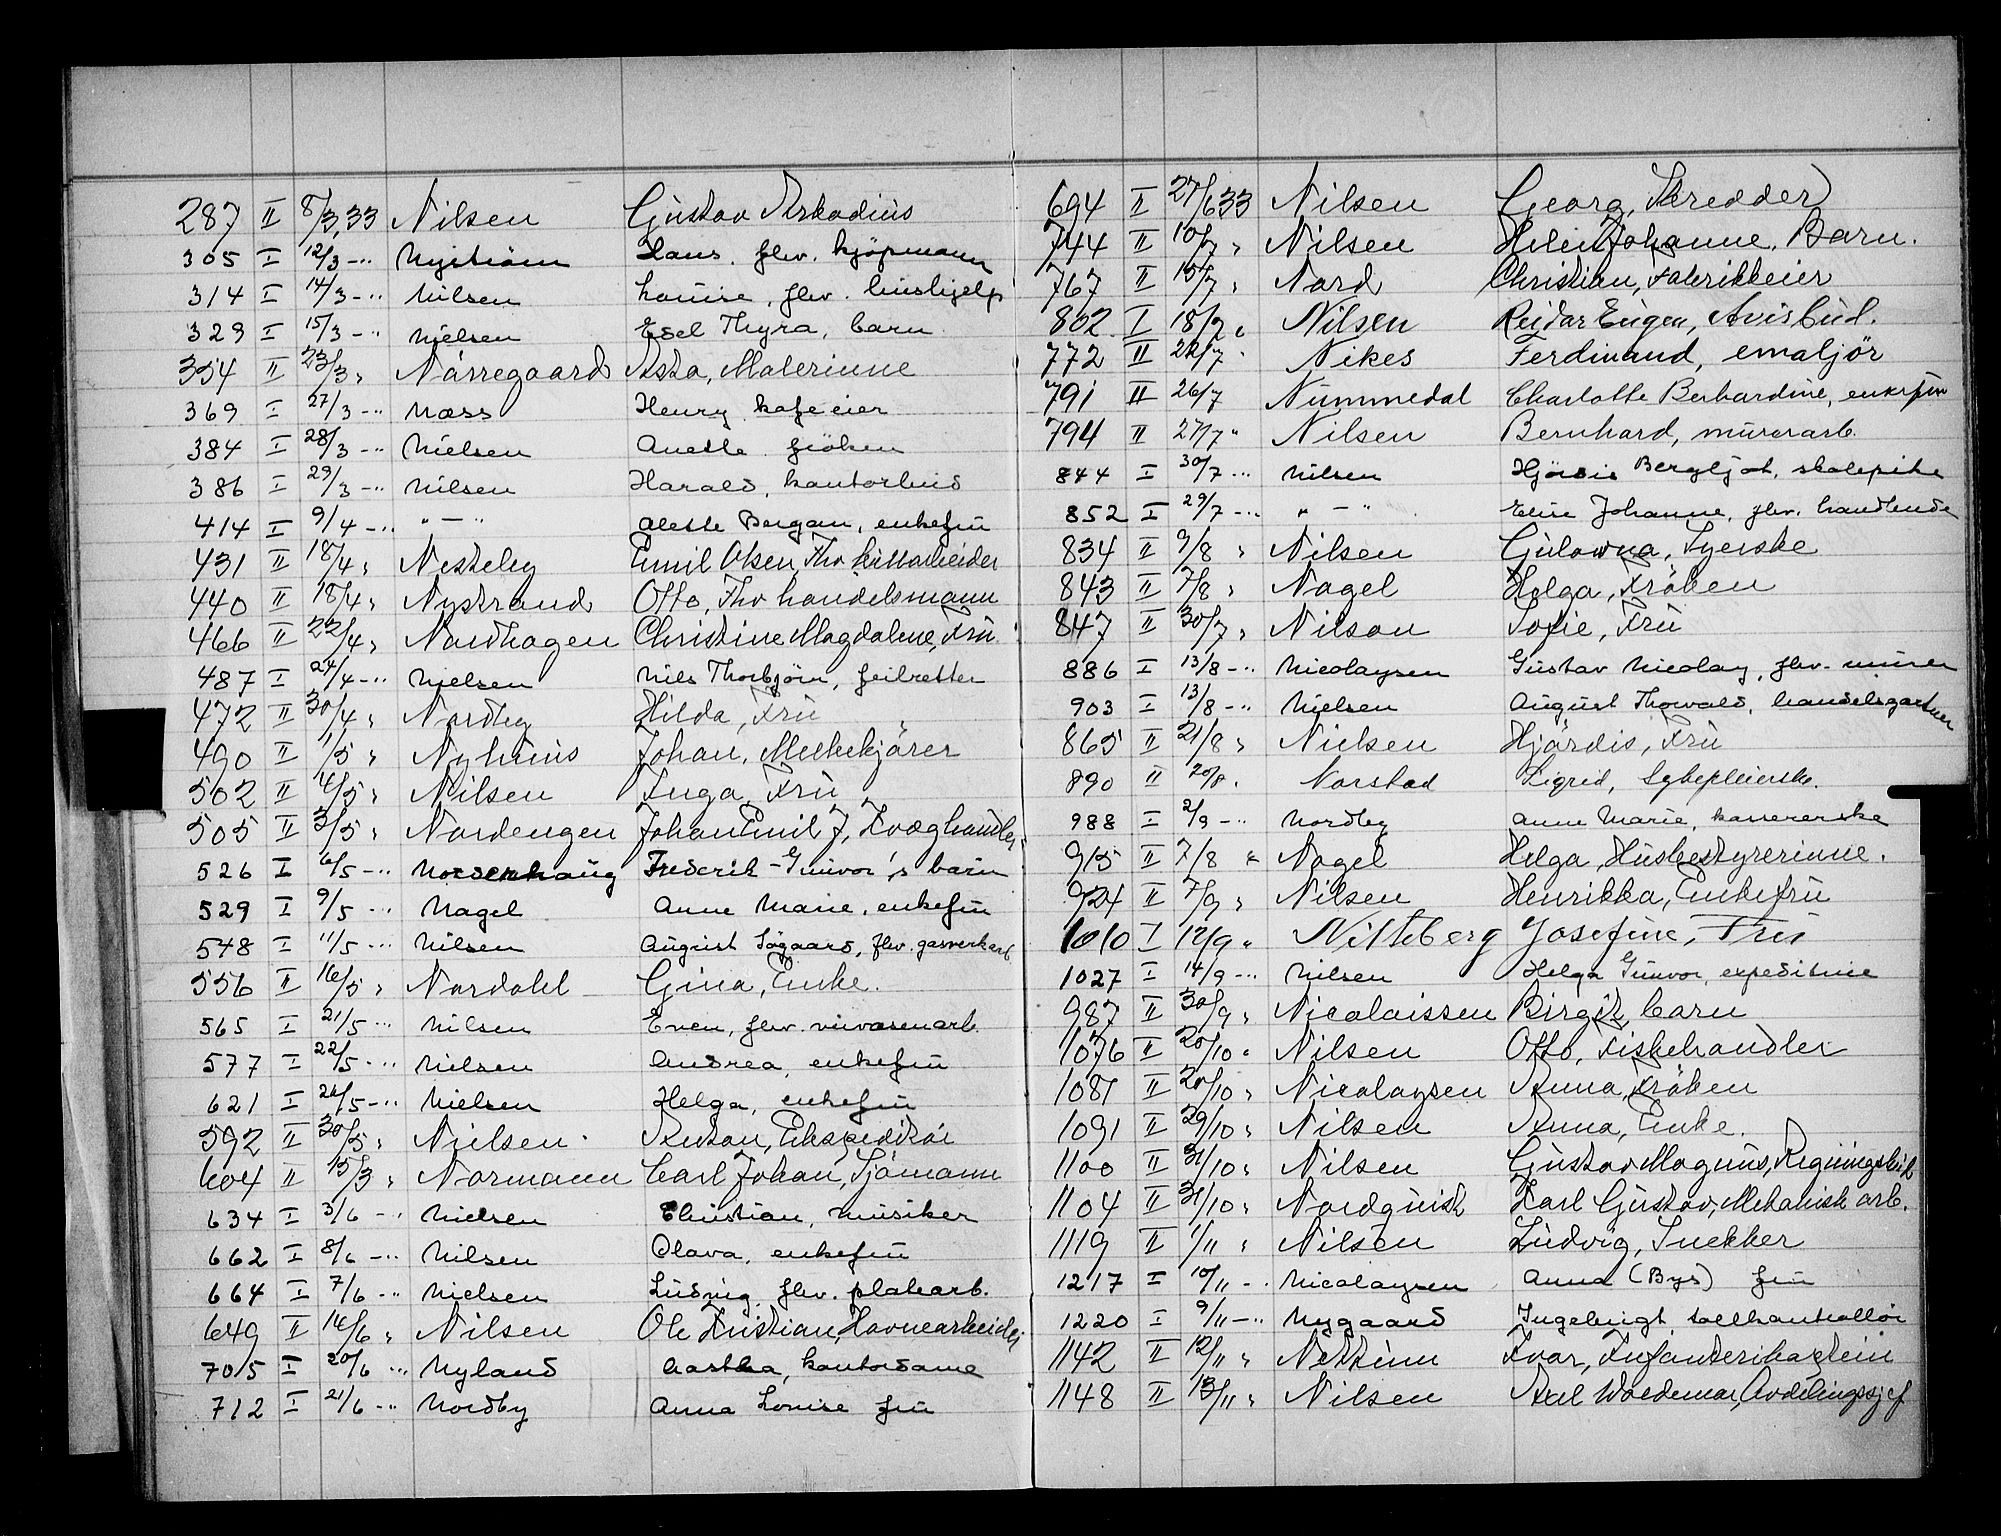 287 II 8/3,33 Nilsen Gustav Arkadius
305 I 12/3 -"- Nyström Hans. fhv. kjöpmann
314 I 14/3 -"- Nilsen Louise, fhv. hushjelp
329 I 15/3 -"- Nielsen Esel Thyra, barn
354 II 23/3 " Nörregaard Asta, Malerinne
369 I 27/3 -"- Næss Henry kafeeier
384 I 28/3 -"- Nielsen Anette fröken
386 I 29/3 -"- Nilsen Harald, kontorbud
414 I 9/4 -"- " — " Alette Bergan, enkefru
431 II 18/4 " Nesteby Emil Olsen, Fhv kittarbeider
440 II 18/4 " Nystrand Otto, Fhv handelsmann
466 II 22/4 " Nordhagen Christine Magdalene, Fru
487 I 24/4 -"- Nielsen Nils Thorbjörn, feilretter
472 II 30/4 " Nordby Hilda, Fru
490 II 1/5 " Nyhuus Johan, Melkekjörer
502 II 4/5 " Nilsen Inga, Fru
505 II 3/5 " Nordengen Johan Emil J, Kvæghandler
526 I 6/5 -"- Norderhaug Frederik - Gunvor's barn
529 I 9/5 -"- Nagel Anne Marie, enkefru
548 I 11/5 -"- Nilsen August Sögaard, fhv. gasverkarb.
556 II 16/5 " Nordahl Gina, Enke.
565 I 21/5 -"- Nilsen Even, fhv. veivæsenarb.
577 I 22/5 -"- Nielsen Andrea, enkefru
621 I 26/5 -"- Nielsen Helga, enkefru
592 II 30/5 " Nielsen Anton, Ekspeditör
604 II 15/3 " Normann Carl Johan, Sjömann
634 I 3/6 -"- Nielsen Christian, musiker
662 I 8/6 -"- Nilsen Olava, enkefru
664 I 7/6 -"- Nielsen Ludvig, fhv. platearb.
649 II 14/6 " Nilsen Ole Kristian, Havnearbeider
705 I 20/6 -"- Nyland Aasta, kontordame
712 I 21/6 -"- Nordby Anna Louise fru
694 I 27/6 33 Nilsen Georg, Skredder
744 II 10/7 " Nilsen Helen Johanne, Barn.
767 II 15/7 " Nord Christian, Fabrikkeier
802 I 18/7 " Nilsen Reidar Eugen, Avisbud.
772 II 22/7 " Nikes Ferdinand, emaljör
791 II 26/7 Nummedal Charlotte Berhardine, enkefru
794 II 27/7 " Nilsen Bernhard, murerarb.
844 I 30/7 -"- Nilsen Hjördis Bergljot, skolepike
852 I 29/7 -"- " — " Elise Johanne, fhv. handlende
834 II 9/8 " Nilsen Gulowna, Syerske
843 II 7/8 " Nagel Helga, Fröken
847 II 30/7 " Nilson Sofie, Fru
886 I 13/8 -"- Nicolaysen Gustav Nicolay, fhv. murer
903 I 13/8 -"- Nielsen August Thorvald, handelsgartner
865 II 21/8 " Nielsen Hjördis, Fru
890 II 20/8 " Norstad Sigrid, Sykepleierske.
988 I 2/9 -"- Nordby Anne Marie, kassererske
915 II 7/8 " Nagel Helga, Husbestyrerinne.
924 II 7/9 " Nilsen Henrikka, Enkefru
1010 I 12/9 " Nitteberg Josefine, Fru
1027 I 14/9 -"- Nilsen Helga Gunvor, expeditrice
987 II 30/9 " Nicolaissen Birgit, barn
1076 II 20/10 " Nilsen Otto, Fiskehandler
1081 II 20/10 " Nicolaysen Anna, Fröken
1091 II 29/10 " Nilsen Anna, Enke.
1100 II 31/10 " Nilsen Gustav Magnus,
1104 II 31/10 " Nordquist Karl Gustav, Mekanisk arb.
1119 II 1/11 " Nilsen Ludvig, Snekker
1217 I 10/11 -"- Nicolaysen Anna (Bys) fru
1220 I 9/11 -"- Nygaard Ingebrigt tollkontrollör
1142 II 12/11 " Nettum Ivar, Infanterikaptein
1148 II 13/11 " Nilsen Axel Waldemar, Avdelingssjef